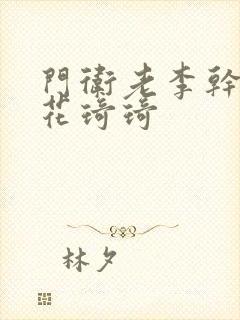 門衛老李幹
花琦琦
林夕